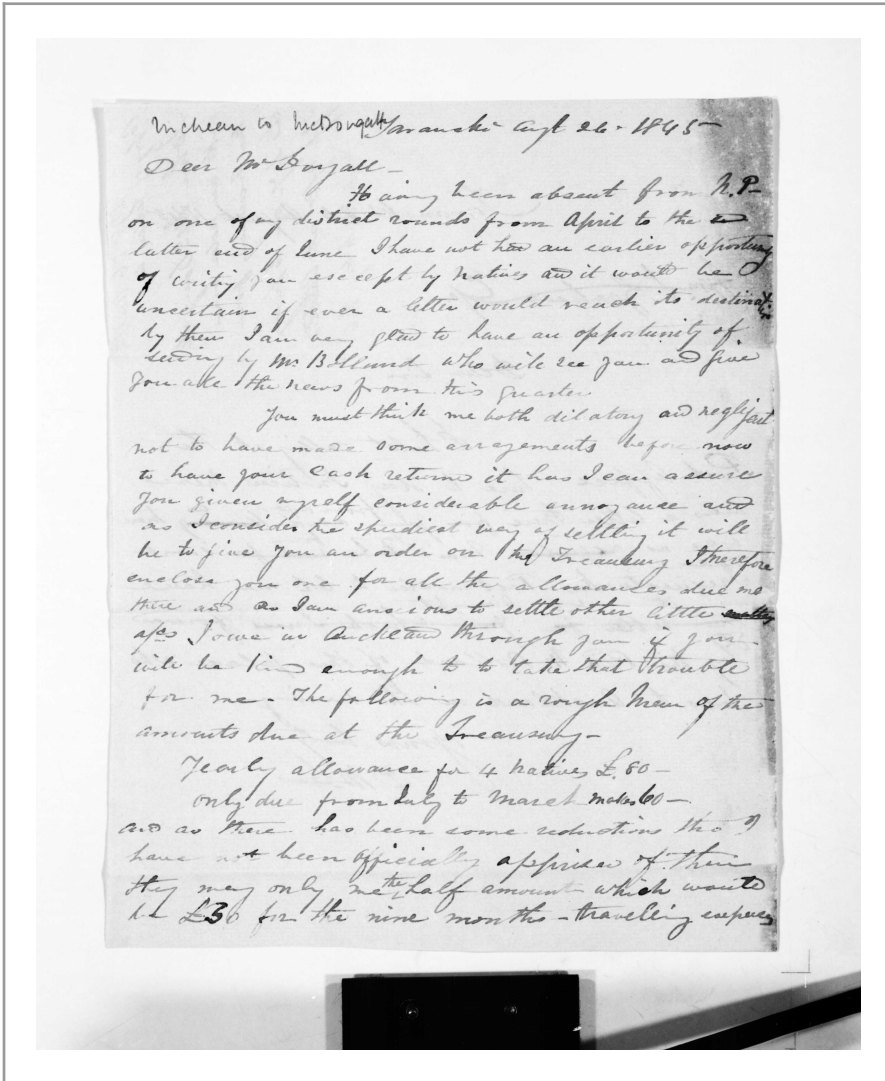 McLean to McDougall Taranaki Augt 26 - 1845
Dear McDougall -
Having been absent from N.P-
on one of my district rounds from April to the
latter end of June I have not had an earlier opportuny
of writing you except by natives and it would be
uncertain if ever a letter would reach its destination
by them I am very glad to have an opportunity of
sending by Mr Bolland who will see you and give
you all the news from this quarter
You must think me both dilatory and negligent
not to have made some arragements before now
to have your Cash returned it has I can assure
you given myself considerable annoyance and
as I consider the speediest way of settling it will
be to give you an order on the Treasury I therefore
enclose you one for all the allowances due me
there and as I am anxious to settle other little
a/cs I owe in Auckland through you if you -
will be kind enough to to take that trouble
for me - The following is a rough Mem of the
amounts due at the Treasury -
Yearly allowance for 4 Natives £.80 -
only due from July to March makes 60 -
and as there has been some reductions tho I
have not been officially apprised of them
they may only me the half amount which would
be £30 for the nine months - travelling expenses